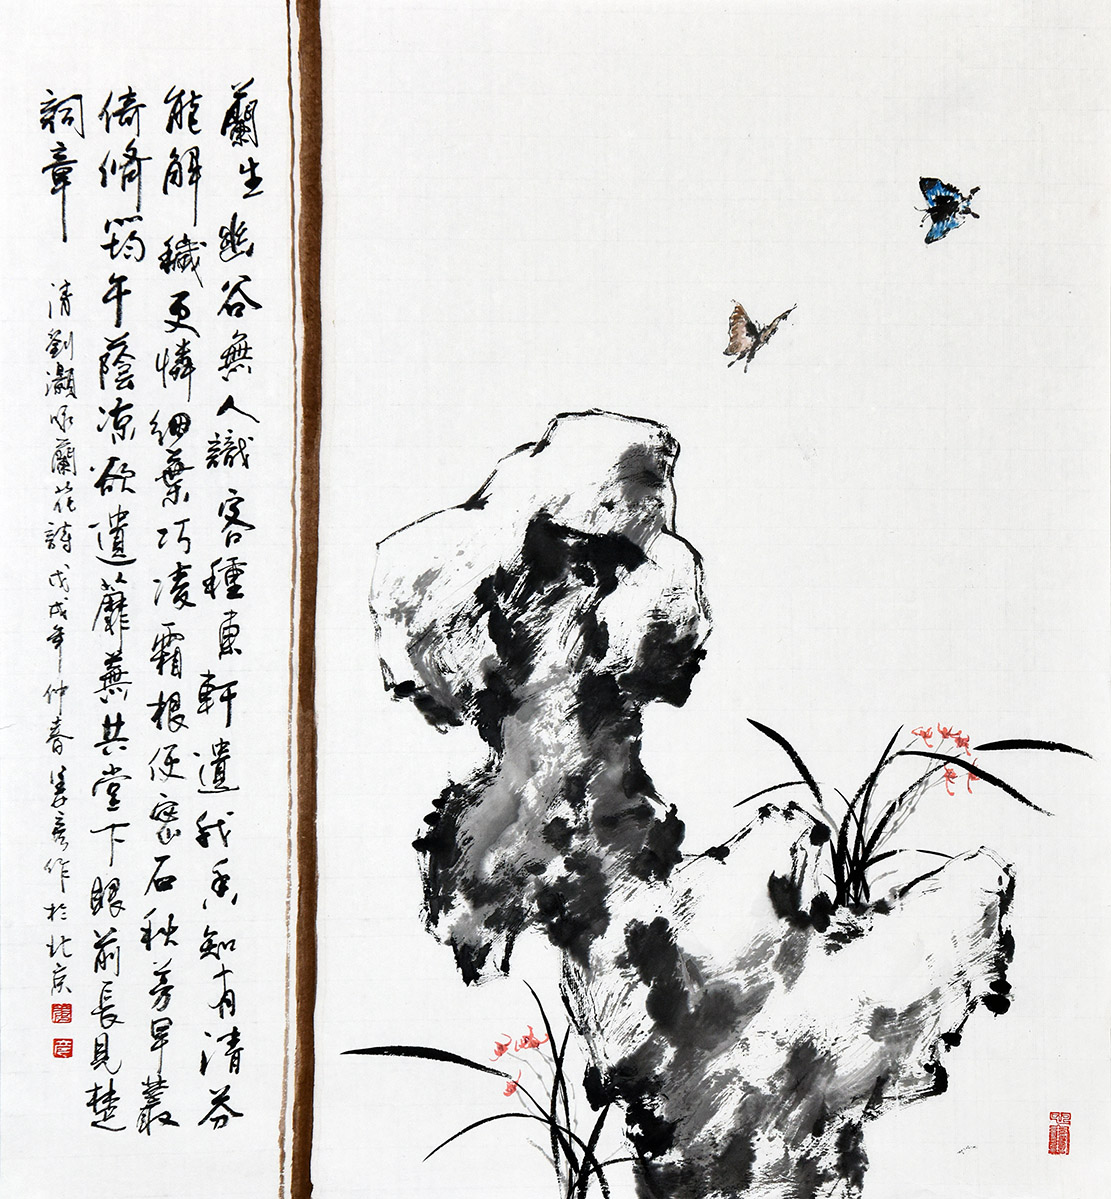 蘭生幽谷無人識客種東軒遺我香知有清芬
能解穢更憐細葉巧凌霜根便密石秋芳早叢
倚脩筠午蔭凉欲遺蘼蕪共堂下眼前長見楚
詞章
清劉灝咏蘭花詩戊戌年仲春姜彥作於北京